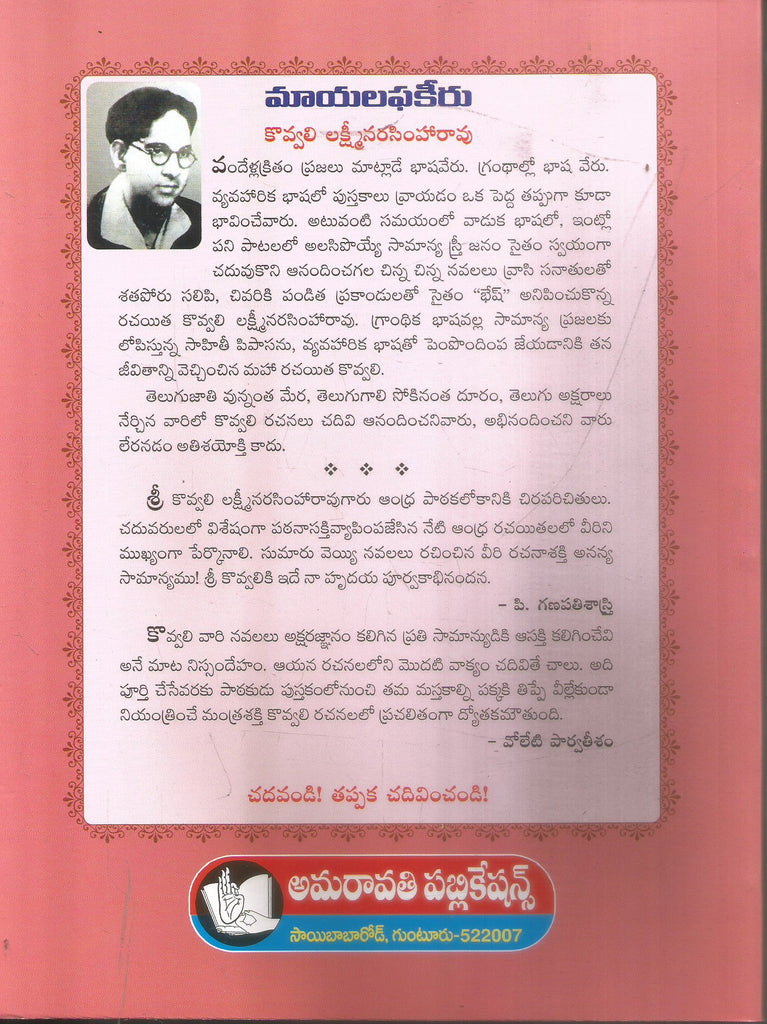 మాయలఫకీరు
కొవ్వలి లక్ష్మీనరసింహారావు
వందేళ్లక్రితం ప్రజలు మాట్లాడే భాషవేరు. గ్రంథాల్లో భాష వేరు.
వ్యవహారిక భాషలో పుస్తకాలు వ్రాయడం ఒక పెద్ద తప్పుగా కూడా
భావించేవారు. అటువంటి సమయంలో వాడుక భాషలో, ఇంట్లో
పని పాటలలో అలసిపొయ్యే సామాన్య స్త్రీ జనం సైతం స్వయంగా
చదువుకొని ఆనందించగల చిన్న చిన్న నవలలు వ్రాసి సనాతులతో
శతపోరు సలిపి, చివరికి పండిత ప్రకాండులతో సైతం “భేష్” అనిపించుకొన్న
రచయిత కొవ్వలి లక్ష్మీనరసింహారావు. గ్రాంథిక భాషవల్ల సామాన్య ప్రజలకు
లోపిస్తున్న సాహితీ పిపాసను, వ్యవహారిక భాషతో పెంపొందింప జేయడానికి తన
జీవితాన్ని వెచ్చించిన మహా రచయిత కొవ్వలి.
తెలుగుజాతి వున్నంత మేర, తెలుగుగాలి సోకినంత దూరం, తెలుగు అక్షరాలు
నేర్చిన వారిలో కొవ్వలి రచనలు చదివి ఆనందించనివారు, అభినందించని వారు
లేరనడం అతిశయోక్తి కాదు.
శ్రీ కొవ్వలి లక్ష్మీనరసింహారావుగారు ఆంధ్ర పాఠకలోకానికి చిరపరిచితులు.
చదువరులలో విశేషంగా పఠనాసక్తివ్యాపింపజేసిన నేటి ఆంధ్ర రచయితలలో వీరిని
ముఖ్యంగా పేర్కొనాలి. సుమారు వెయ్యి నవలలు రచించిన వీరి రచనాశక్తి అనన్య
సామాన్యము! శ్రీ కొవ్వలికి ఇదే నా హృదయ పూర్వకాభినందన.
– పి. గణపతిశాస్త్రి
కొవ్వలి వారి నవలలు అక్షరజ్ఞానం కలిగిన ప్రతి సామాన్యుడికి ఆసక్తి కలిగించేవి
అనే మాట నిస్సందేహం. ఆయన రచనలలోని మొదటి వాక్యం చదివితే చాలు. అది
పూర్తి చేసేవరకు పాఠకుడు పుస్తకంలోనుంచి తమ మస్తకాల్ని పక్కకి తిప్పే వీల్లేకుండా
నియంత్రించే మంత్రశక్తి కొవ్వలి రచనలలో ప్రచలితంగా ద్యోతకమౌతుంది.
– వోలేటి పార్వతీశం
చదవండి! తప్పక చదివించండి!
అమరావతి పబ్లికేషన్స్
సాయిబాబారోడ్, గుంటూరు-522007